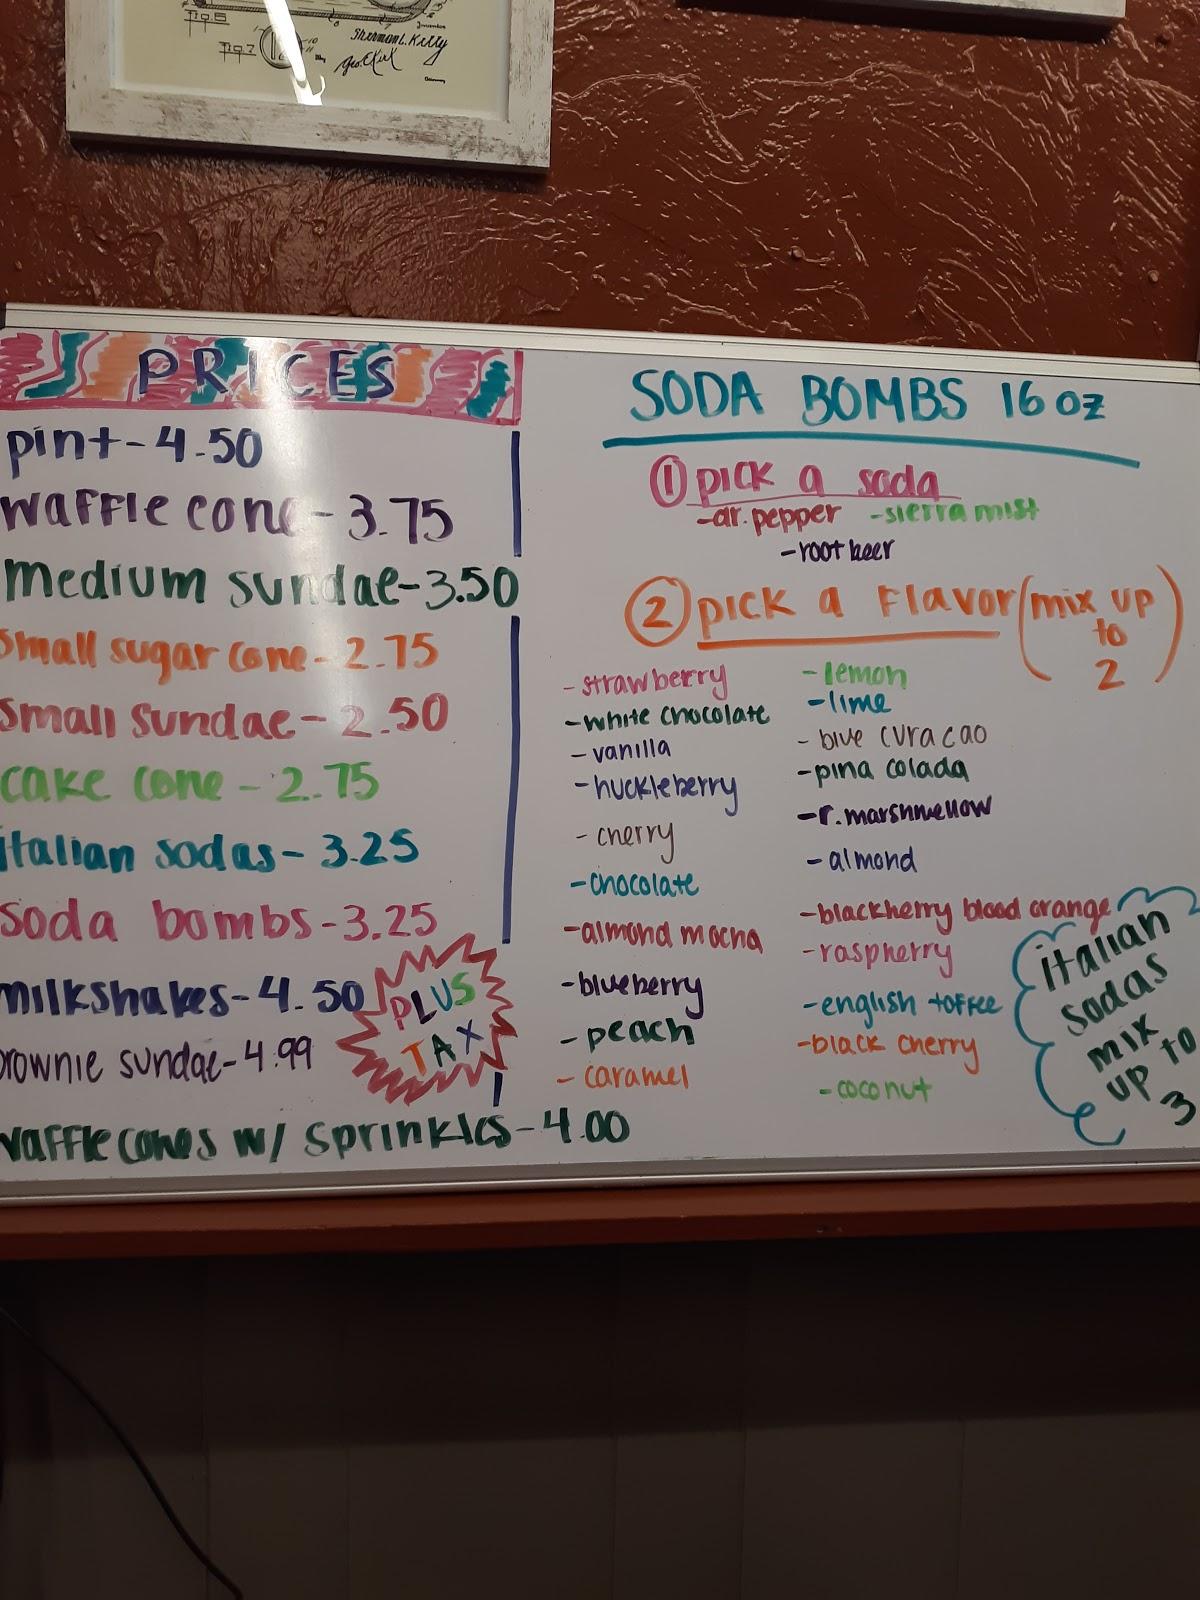 Fig.6
Fig.7
Inventor
Sherman L. Kelly
Attorney
PRICES
pint-4.50
waffle cone-3.75
medium sundae-3.50
small sugar cone-2.75
small sundae-2.50
cake cone-2.75
italian sodas-3.25
soda bombs-3.25
milkshakes-4.50
brownie sundae-4.99
waffle cones w/ sprinkles-4.00
PLUS
TAX
SODA BOMBS 16 oz
① pick a soda
-dr. pepper -sierra mist
-root beer
② pick a flavor (mix up
to
2)
-strawberry
-white chocolate
-vanilla
-huckleberry
-cherry
-chocolate
-almond mocha
-blueberry
-peach
-caramel
-lemon
-lime
-blue curacao
-pina colada
-r. marshmellow
-almond
-blackberry blood orange
-raspberry
-english toffee
-black cherry
-coconut
italian
sodas
mix
up to
3